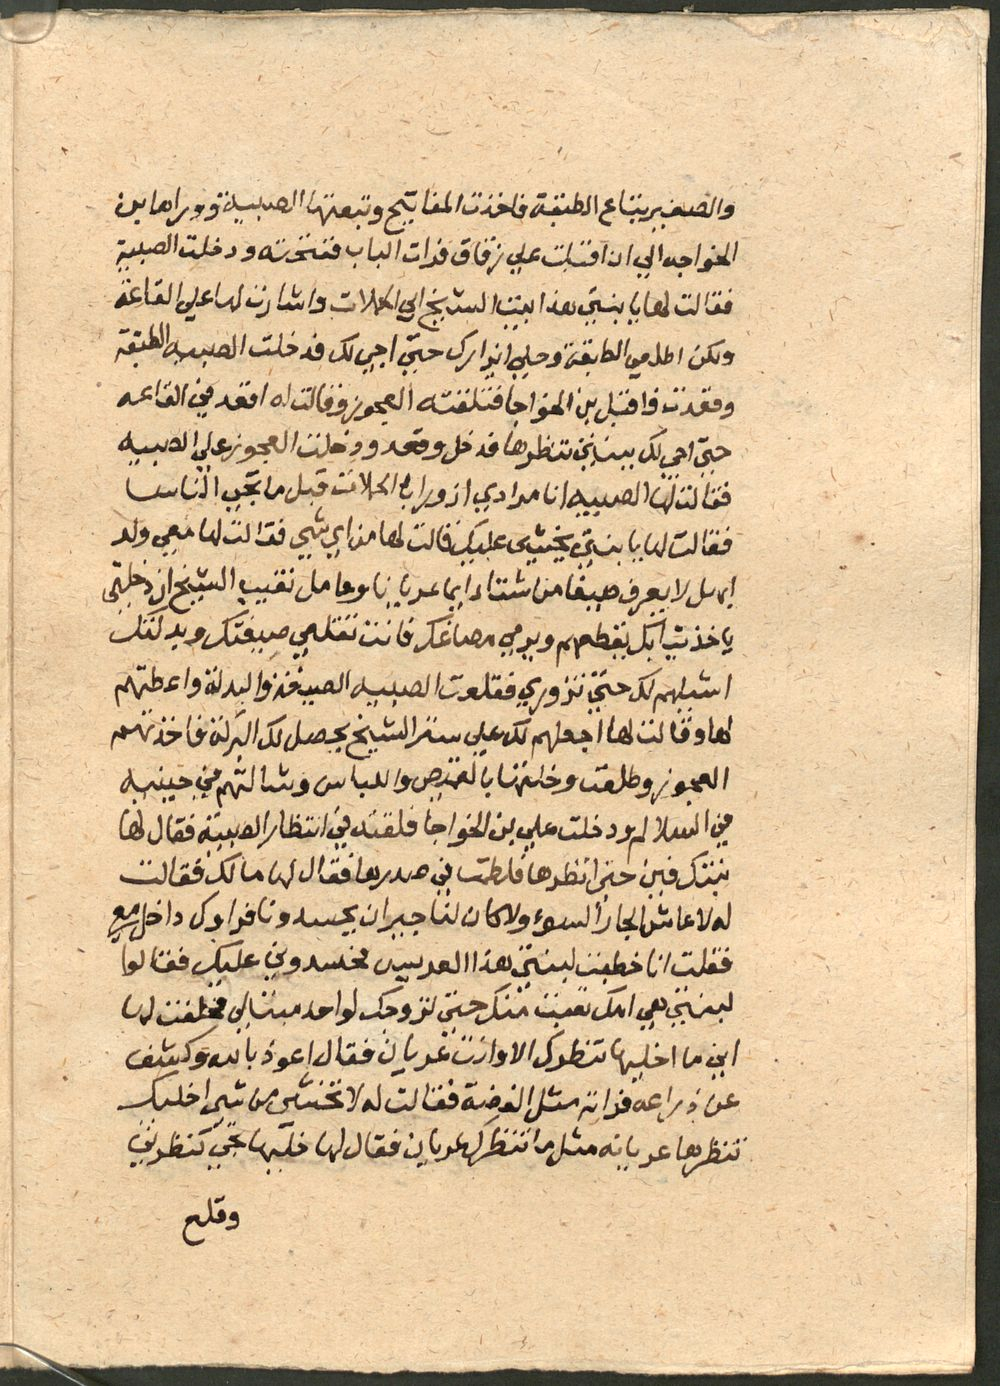 والصغير بتاع الطبقة فاخذت المفاتيح وتبعتها الصبية ووراها بن
الخواجه الي ان اقبلت علي زقاق فرات الباب ففتحته ودخلت الصبية
فقالت لها يا بنتي هذا بيت الشيخ ابي الحملات واشارت لها علي القاعة
ولكن اطلعي الطابقة وحلي ايزارك حتي اجي لك فدخلت الصبيه الطبقة
وقعدت فاقبل بن الخواجا فتلقته العجوز وقالت له اقعد في القاعه
حتي اجي لك ببنتي تنظرها فدخل وقعد ودخلت العجوز علي الصبيه
فقالت لها الصبيه انا مرادي ازور ابا الحملات قبل ما تجي الناس
فقالت لها يا بنتي يخشي عليك قالت لها من اي شي فقالت لها معي ولد
اهبل لا يعرف صيفا من شتاء دايما عريانا وعامل نقيب الشيخ ان دخلتي
ياخذ ثيابك يقطعهم ويرمي مصاغك فانت تقلعي صيغتك وبدلتك
اشيلهم لك حتي تزوري فقلعت الصبيه الصيغة والبدلة واعطتهم
لها وقالت لها اجعلهم لك علي ستر الشيخ يحصل لك البركة فاخذتهم
العجوز وطلعت وخلتها بالقميص واللباس وشالتهم في جنبيه
في السلالم ودخلت علي بن الخواجا فلقته في انتظار الصبية فقال لها
بنتك فين حتي انظرها فلطمت في صدرها فقال لها مالك فقالت
له لا عاش الجار السوء ولا كان لنا جيران يحسدونا فراوك داخل معي
فقلت انا خطبت لبنتي هذا العريس فحسدوني عليك فقالوا
لبنتي هي امك تعبت منك حتي تزوجك لواحد مبتلي فحلفت لها
اني ما اخليها تنظرك الا وانت عريان فقال اعوذ بالله وكشف
عن ذراعه فراته مثل الفضة فقالت له لا تخشي من شي اخليك
تنظرها عريانه مثل ما تنظرك عريان فقال لها خليها تجي تنظرني
وقلع